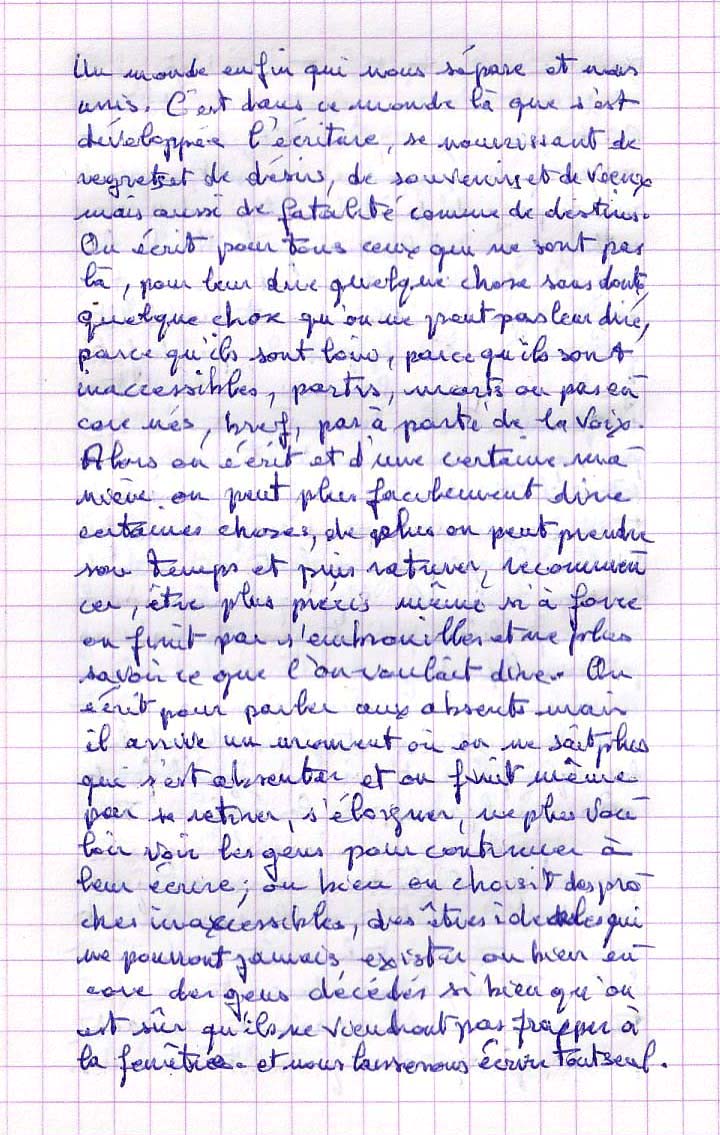 Un monde enfin qui nous sépare et nous
unis. C'est dans ce monde là que s'est
développée l'écriture, se nourrissant de
regrets et de désirs, de souvenirs et de voeux
mais aussi de fatalité comme de destins.
On écrit pour tous ceux qui ne sont pas
là, pour leur dire quelque chose sans doute,
quelque chose qu'on ne peut pas leur dire,
parce qu'ils sont loin, parce qu'ils sont
inaccessibles, partis, morts ou pas en
core nés, bref, pas à porté de la voix.
Alors on écrit et d'une certaine ma
nière on peut plus facilement dire
certaines choses, de plus on peut prendre
son temps et puis raturer, recommen
cer, être plus précis même si à force
on finit par s'embrouiller et ne plus
savoir ce que l'on voulait dire. On
écrit pour parler aux absents mais
il arrive un moment où on ne sait plus
qui s'est absenter et on finit même
par se retirer, s'éloigner, ne plus vou
loir voir les gens pour continuer à
leur écrire; ou bien on choisit des pro
ches inaccessibles, des êtres idéales qui
ne pourront jamais exister ou bien en
core des gens décédés si bien qu'on
est sûr qu'ils ne viendront pas frapper à
la fenêtre. et nous laisserons écrire tout seul.